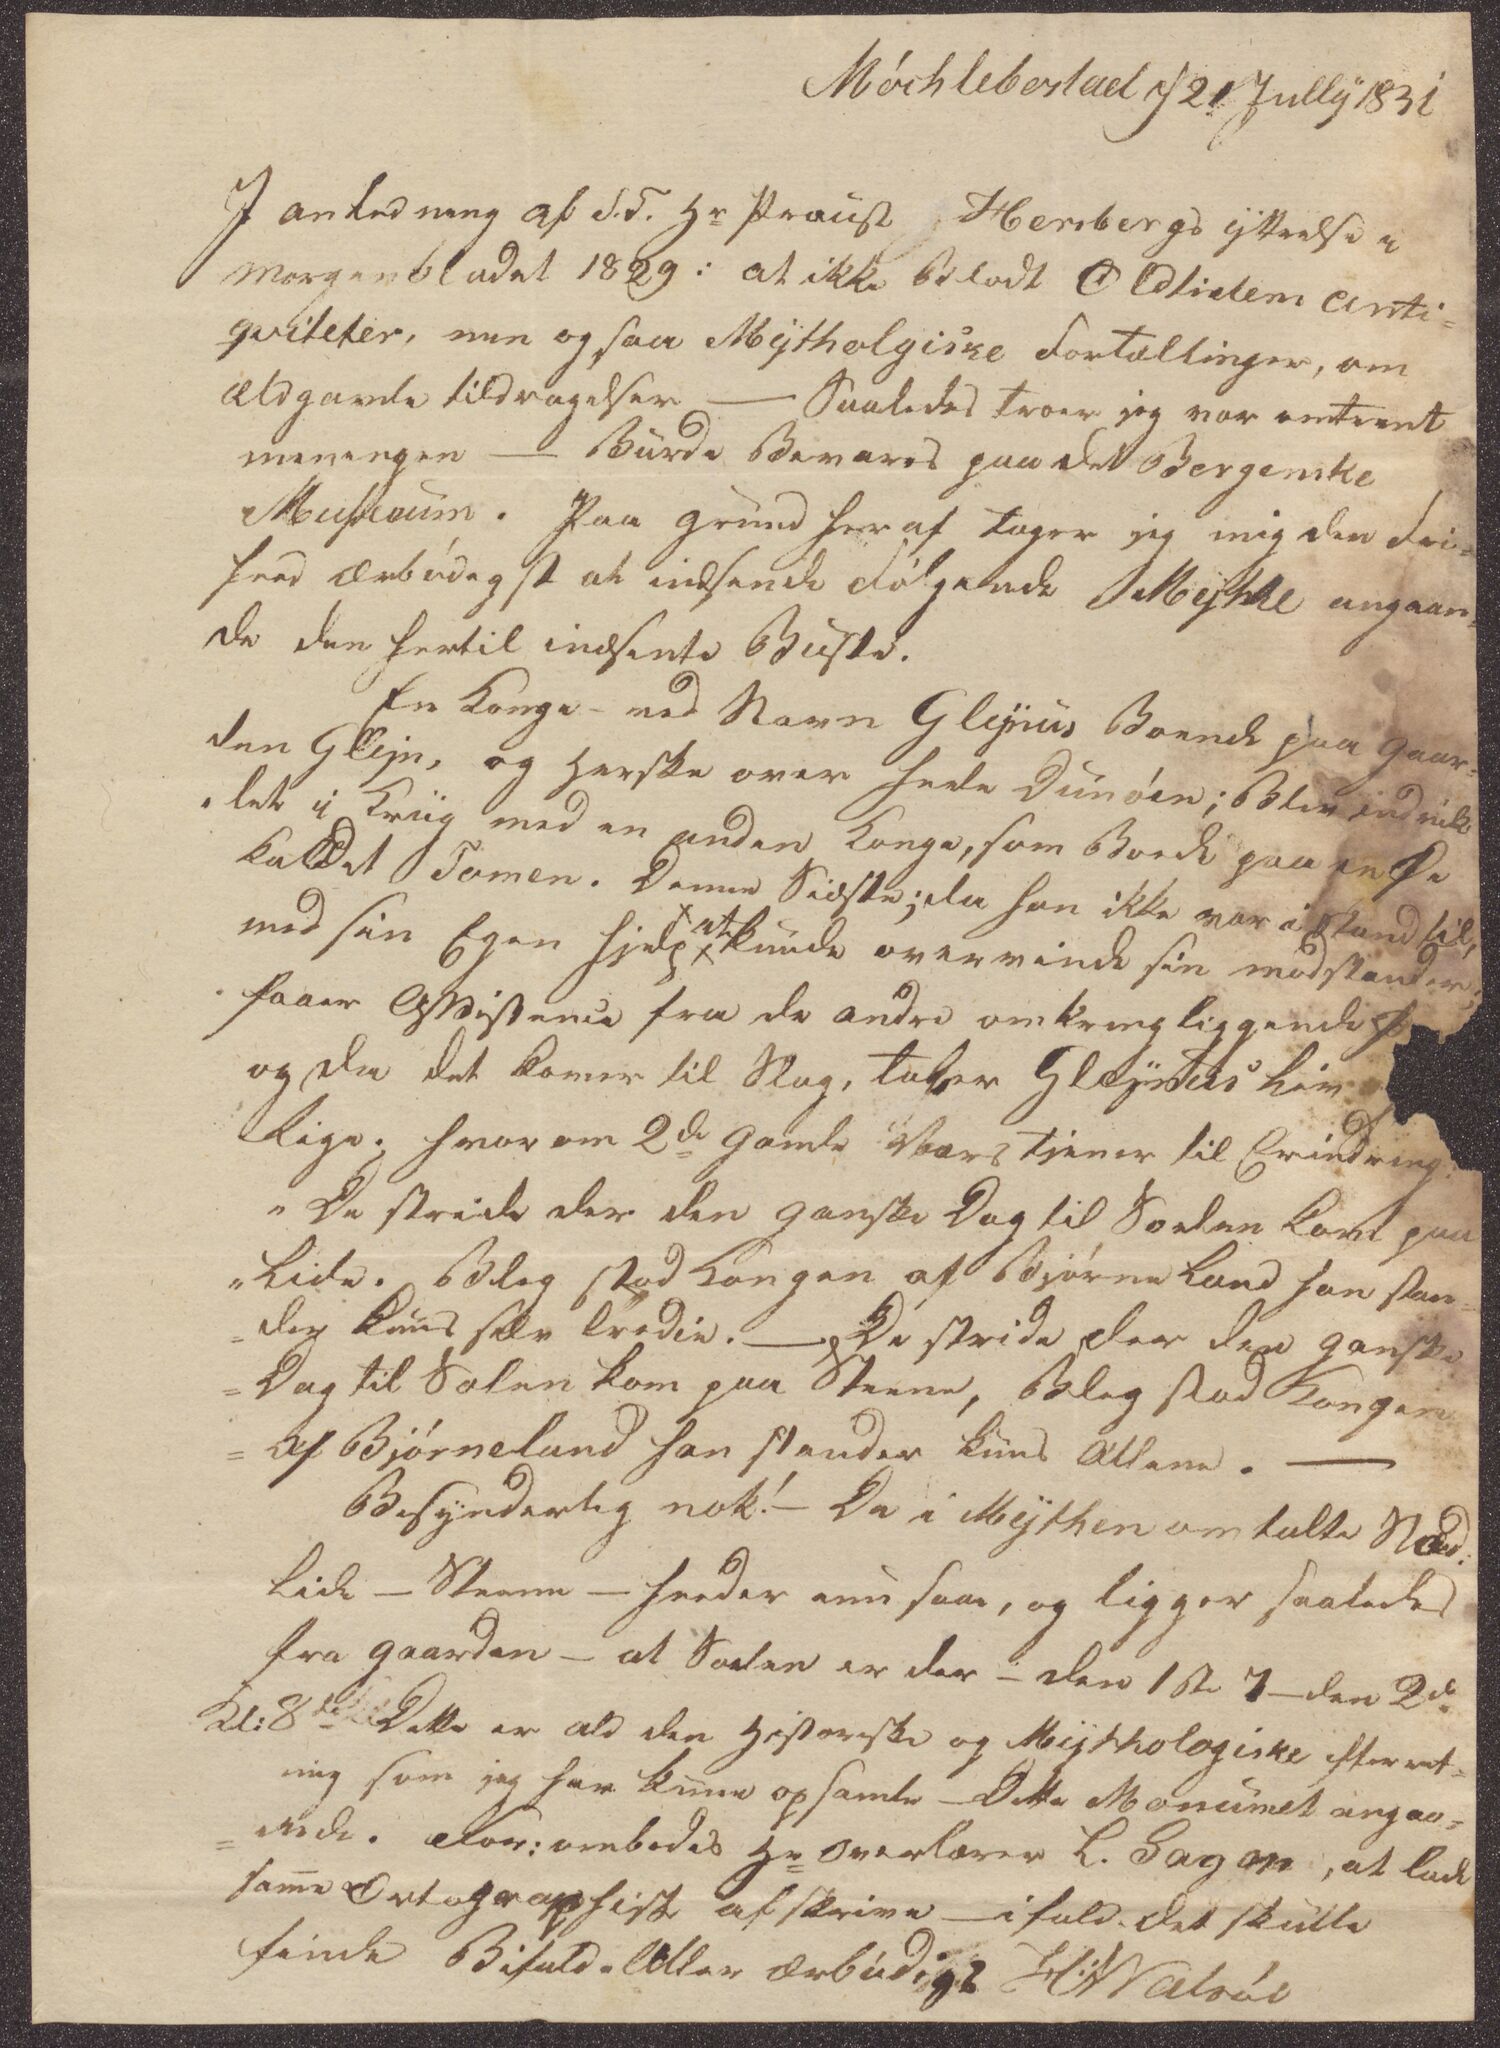 Móchlebostad d 21 Jullÿ 1831
I anledning af S.T. Hr Praust Hersbergs ÿttrelse i
Morgenbladet 1829: at ikke Blodt Oldtidens Anti=
qviteter, men ogsaa Mÿtholgiske Fortællinger, om
ældgamle tildragelser — Saaledes troer jeg var omtrent
meningen — Burde Bevares paa det Bergenske
Musæum. Paa grund heraf tager jeg mig den Fri=
hed ærbódigst at indsende Fólgende Mÿthe angaaen=
de den hertil indsente Buste.
En Konge – ved Navn Gleÿnus Boende paa Gaar=
den Gleÿn, og herske over hele Dunóen; Blev indvik=
let i Kriig med en anden Konge, som Boede paa en Øe
kaldet Tomen. Denne Sidste; da han ikke var i Stand til,
med sin Egen hjelp at kunde overvinde sin modstander;
faaer Assistence fra de andre omkringliggende
og da det komer til Slag, taber Gleÿnus Liv
Rige; hvorom 2de gamle Værs tjener til Erindring:
"De stride der den ganske Dag til Soelen kom paa
"Lide. Bleg stod Kongen af Bjórneland han stan=
=der kuns selv tredie. — De stride der den ganske
=Dag til Solen kom paa Steene, Bleg stod Kongen
=af Bjórneland han stander kuns Allene. —
Besÿnderlig nok! – De i Mÿthen omtalte Stæd:
Lide – Steene – heeder enu saa, og ligger saaledes
fra gaarden – at Soelen er der – den 1ste 7 – den 2de
Kl: 8te Dette er ald den Historiske og Mÿthologiske Efterret=
ning som jeg har kune opsamle – Dette Monumet angaa=
=ende. For: ombedes Hr Overlærer L. Sagen, at lade
same Ortographisk afskrive — ifald det skulle
finde Bifald. Aller ærbódigst H: Walsóe